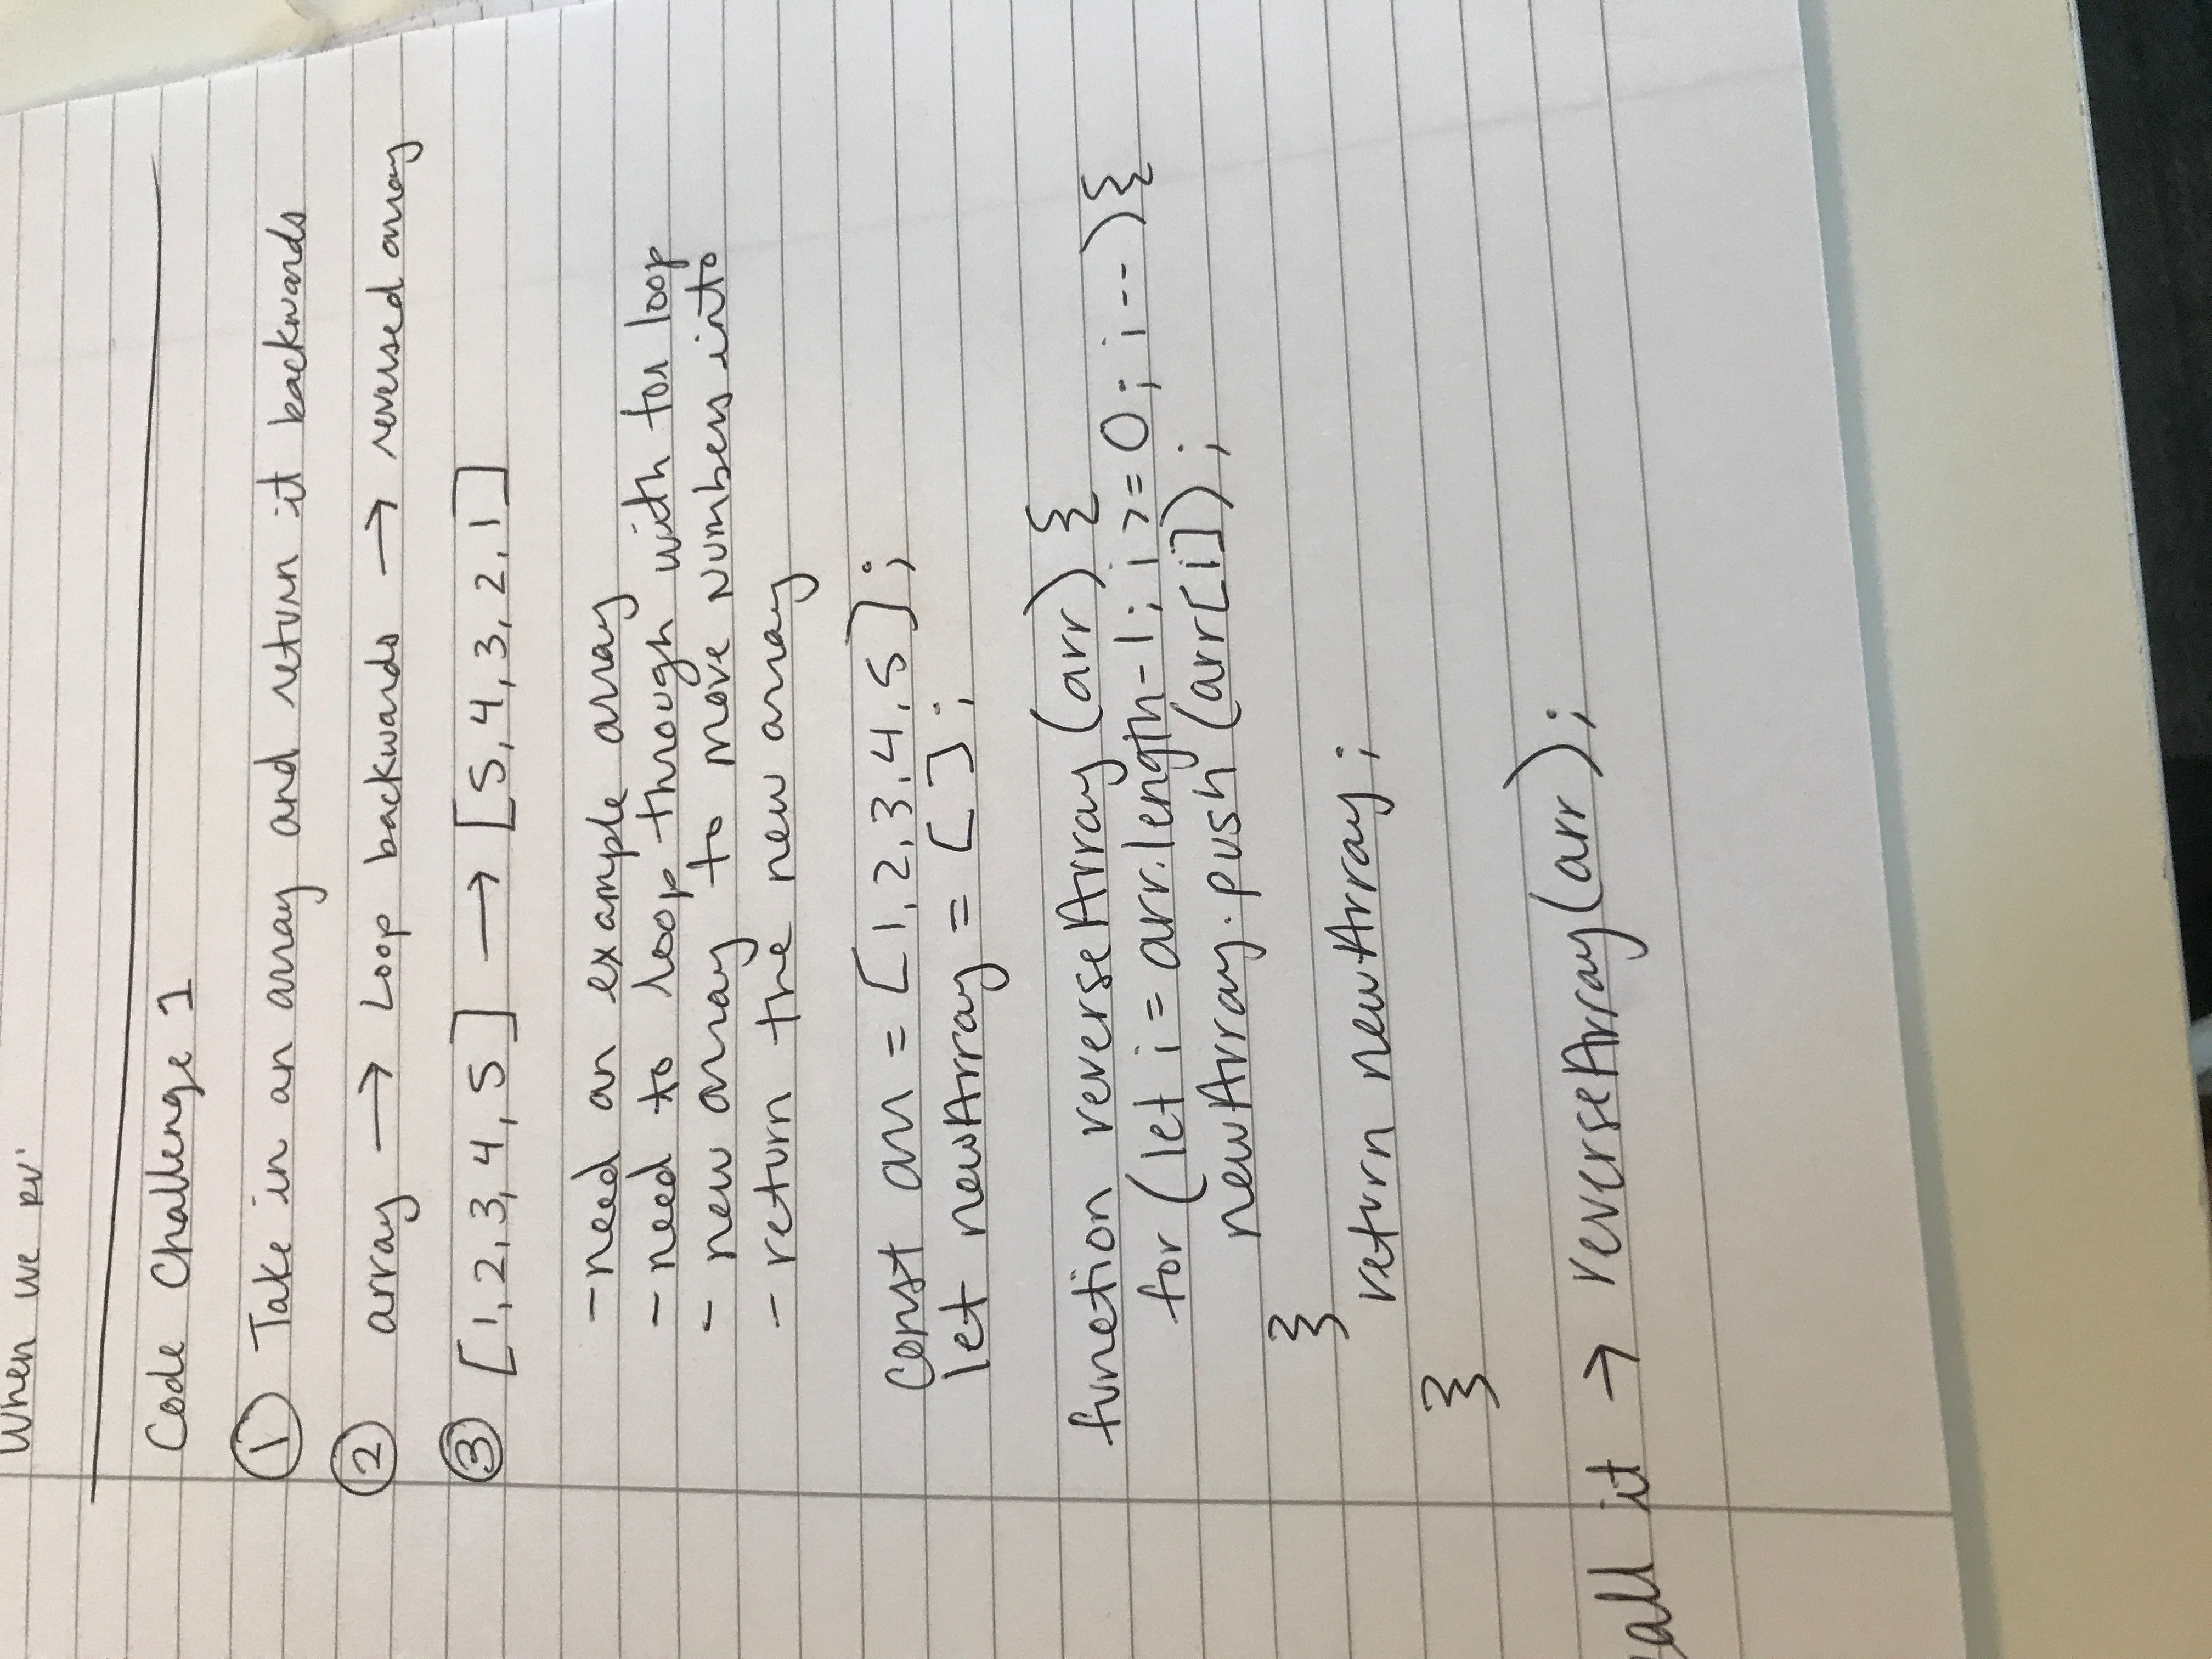 When we
Code Challenge 1
① Take in an array and return it backwards
② array → Loop backwards → reversed array
③ [1, 2, 3, 4, 5] → [5, 4, 3, 2, 1]
- need an example array
- need to loop through with for loop
- new array to move numbers into
- return the new array
const arr = [1, 2, 3, 4, 5];
let newArray = [];
function reverseArray(arr) {
for (let i = arr.length-1; i >= 0; i--){
newArray.push(arr[i]);
}
return newArray;
}
call it → reverseArray(arr);